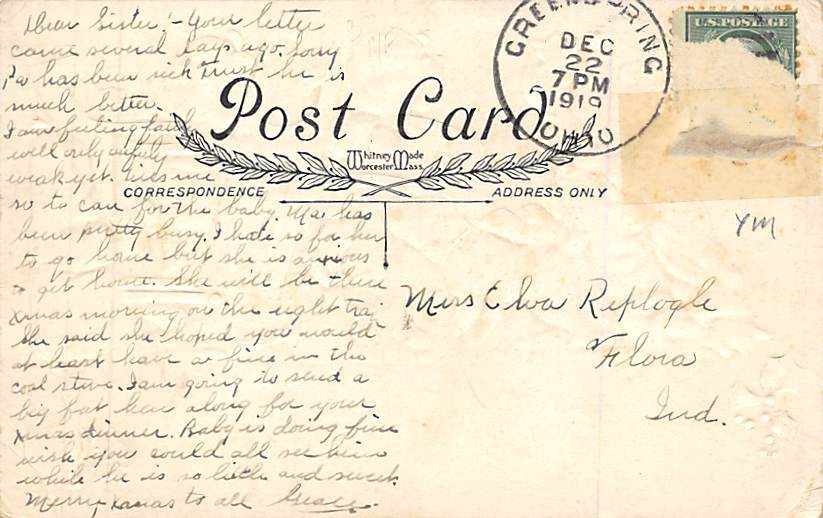 Dear Sister!- Your letter
came several days ago. Sorry
Pa has been sick Trust he is
much better.
I am feeling fairly
well only awfully
weak yet. tires me
so to care for the baby. Ma has
been pretty busy. I hate so for her
to go home but she is anxious
to get home. She will be there
Xmas morning on the night trai
She said she hoped you would
at least have a fire in the
coal stove. I am going to send a
big fat hen along for your
Xmas dinner. Baby is doing fine
wish you could all see him
while he is so little and sweet.
Merry Xmas to all Grace.
Post Card
Whitney Made
Worcester Mass
CORRESPONDENCE
ADDRESS ONLY
GREENSPRING
DEC
22
7 PM
1919
OHIO
U.S. POSTAGE
YM
Miss Elva Replogle
Flora
Ind.